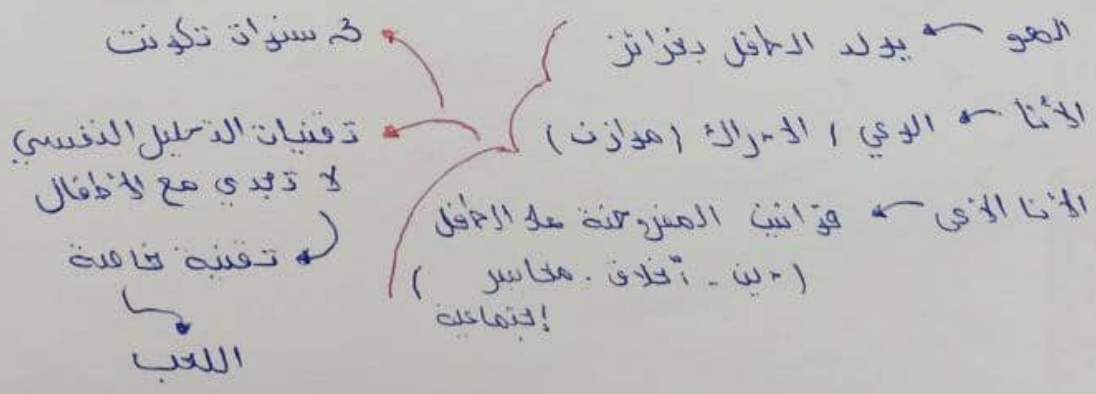 الهو ← يولد الطفل بغرائز
الأنا ← الوعي / الادراك (موازن)
الأنا الأعلى ← قوانين المفروضة على الطفل
(دين - أخلاق - معايير
إجتماعية)
3 سنوات تكونت
تقنيات التحليل النفسي
لا تجدي مع الأطفال
تقنية خاصة
اللعب